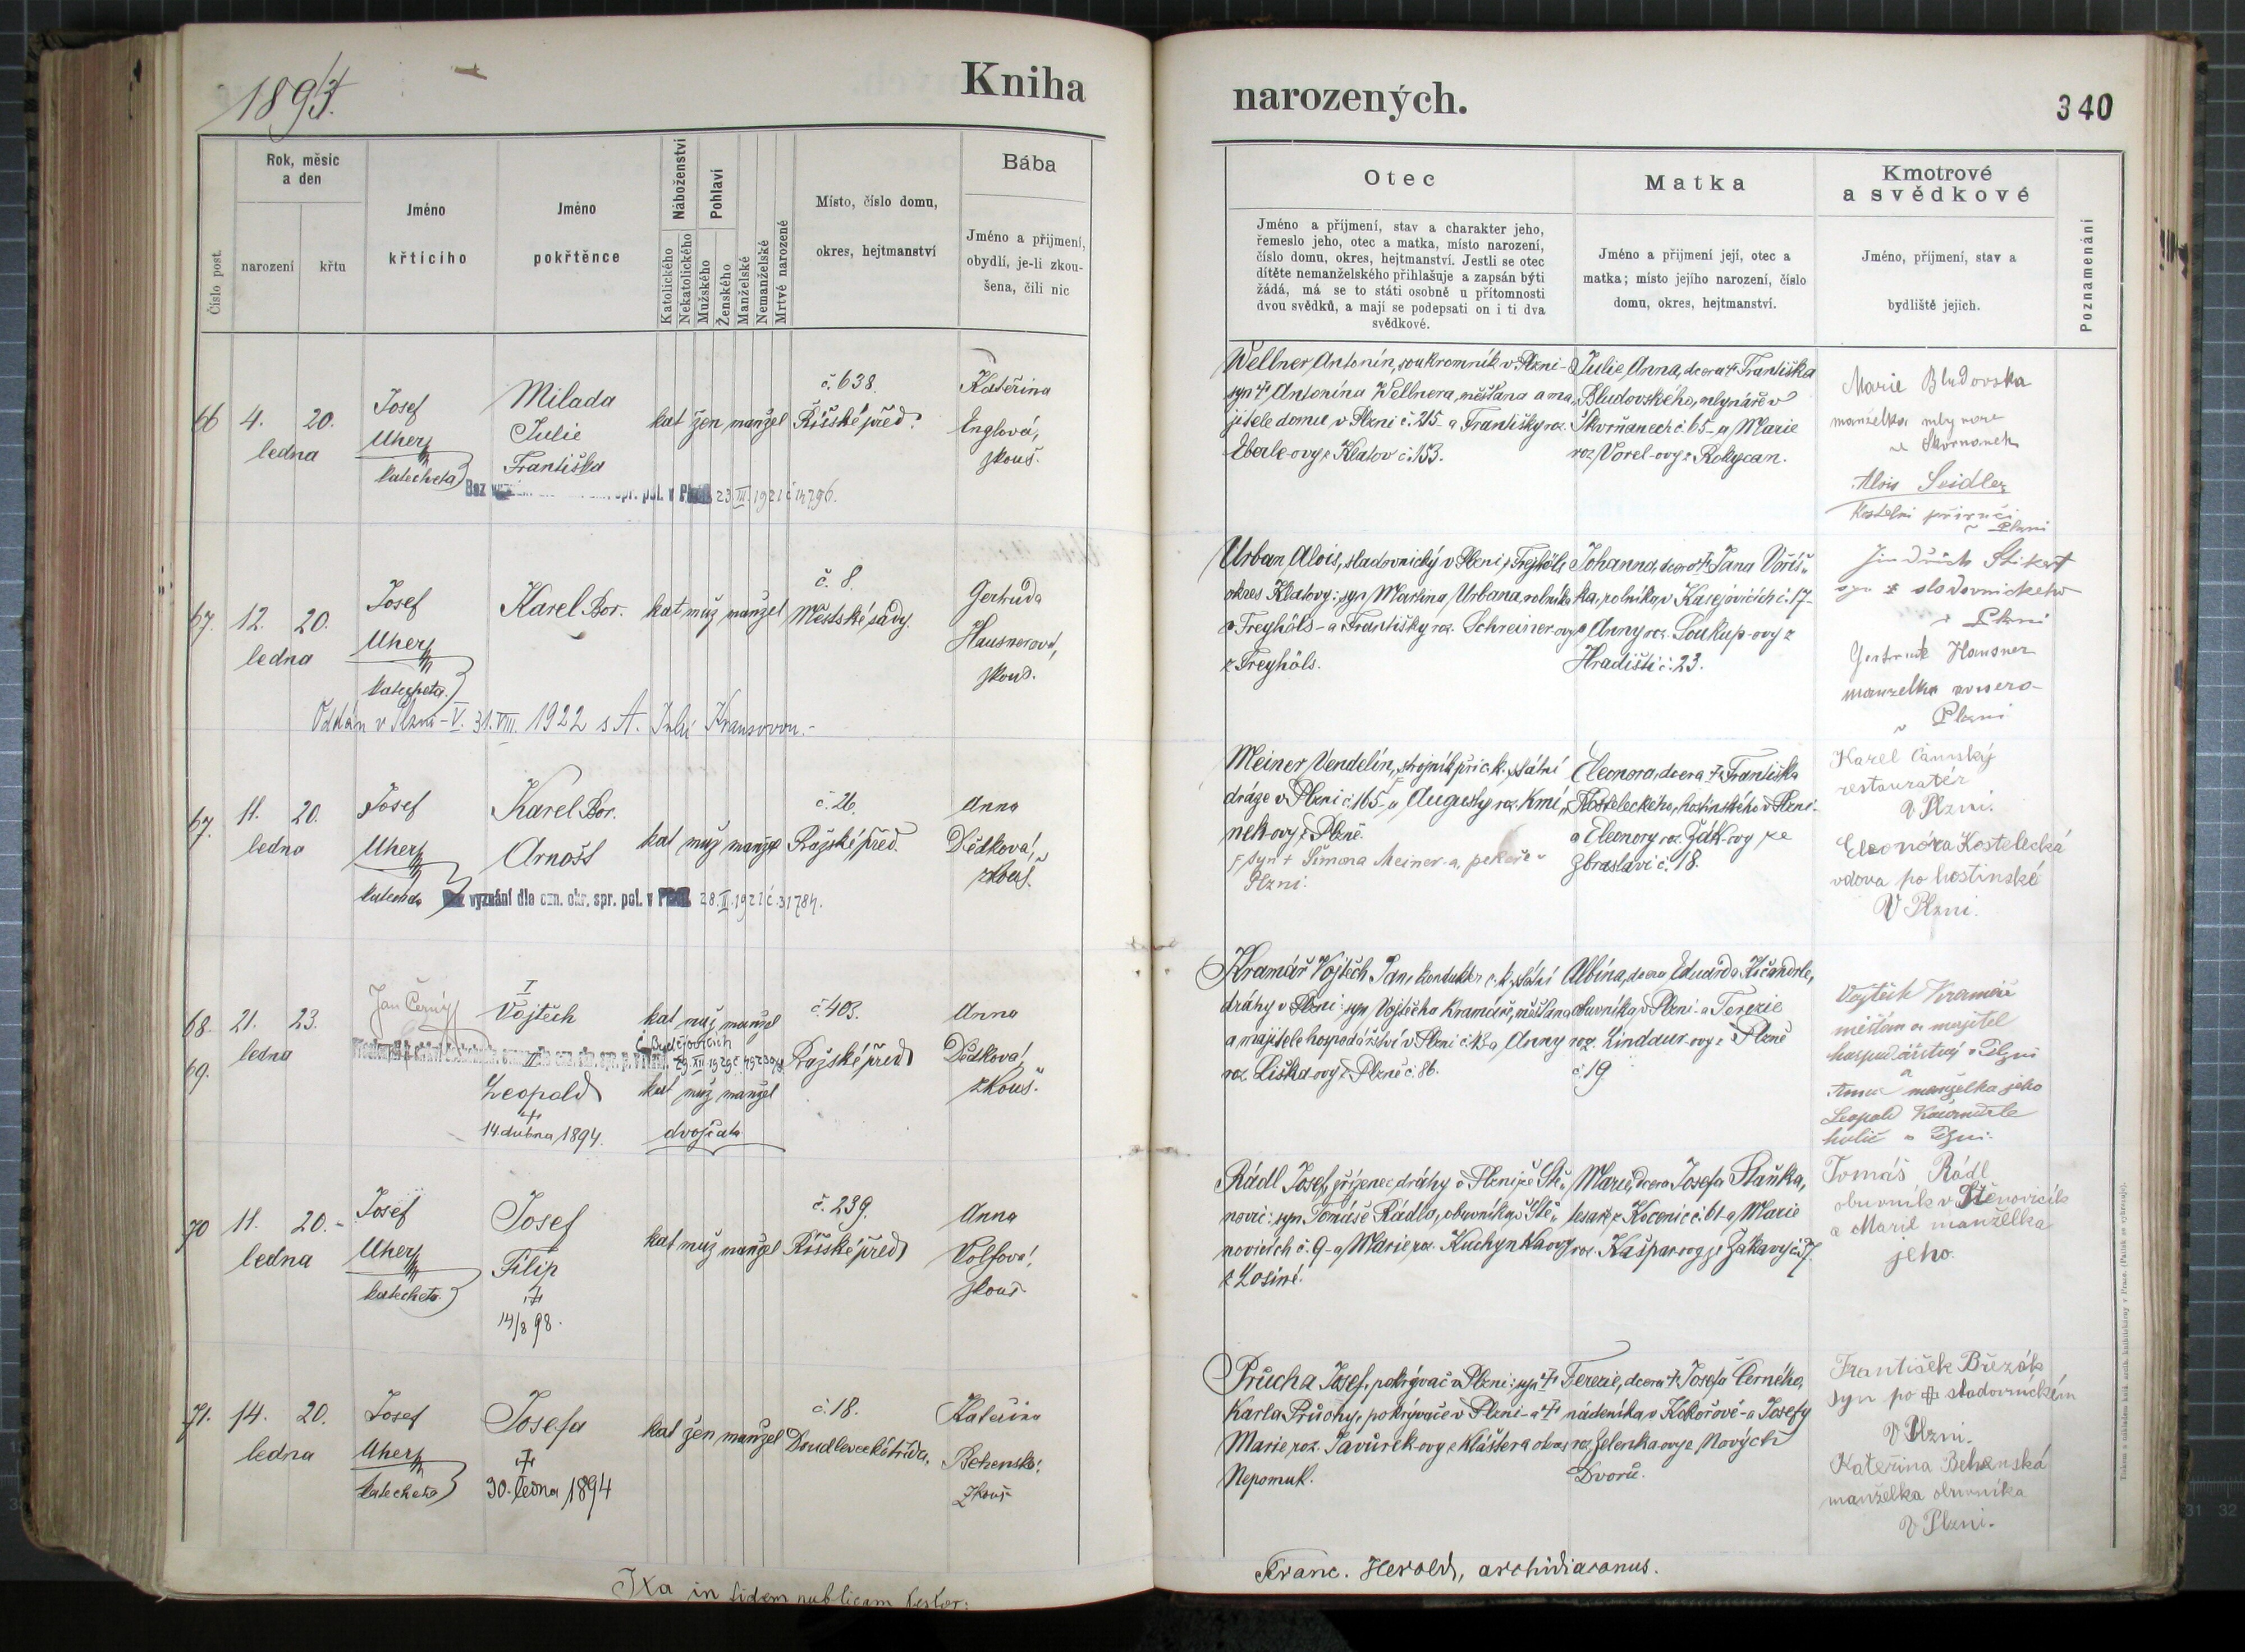 1894.
Kniha
Rok, měsíc
a den
Číslo post.
narození
křtu
Jméno
křticího
Jméno
pokřtěnce
Náboženství
Katolického
Nekatolického
Pohlaví
Mužského
Ženského
Manželské
Nemanželské
Mrtvě narozené
Místo, číslo domu,
okres, hejtmanství
Bába
Jméno a příjmení,
obydlí, je-li zkou-
šena, čili nic
66 4. 20.
ledna
Josef
Uher
katecheta
Milada
Julie
Františka
kat žen manžel
č. 638.
Říšské před.
Kateřina
Englová,
zkouš.
Bez 23.III.1921 č 14796.
67. 12. 20.
ledna
Josef
Uher
katecheta.
Karel Bor.
kat muž manžel
č. 8.
Městské sady.
Gertruda
Hausnerová,
zkouš.
Oddán v Plzni - V. 31.VIII. 1922 s A. Julií Krausovou.-
67. 11. 20.
ledna
Josef
Uher
katecheta
Karel Bor.
Arnošt
kat muž manžel
č. 26.
Pražské před.
Anna
Dědková,
zkouš.
vyznání dle ozn. okr. spr. pol. v 28.II.1921 č.31784.
68. 21. 23.
ledna
69.
Jan Černý
I
Vojtěch
kat muž manžel
č. 403.
Pražské před
Č. Budějovicích
II
Leopold
kat muž manžel
14. dubna 1894.
dvojčata
Anna
Dědková,
zkouš.
70 11. 20.-
ledna
Josef
Uher
katecheta.
Josef
Filip
14/8 98.
kat muž manžel
č. 239.
Říšské před
Anna
Volfová,
zkouš
71. 14. 20.
ledna
Josef
Uher
katecheta
Josefa
30. ledna 1894
kat žen manžel
č. 18.
Doudlevecká třída,
Kateřina
Behenská,
zkouš
Ita in fidem publicam testor:
narozených.
340
Otec
Jméno a příjmení, stav a charakter jeho,
řemeslo jeho, otec a matka, místo narození,
číslo domu, okres, hejtmanství. Jestli se otec
dítěte nemanželského přihlašuje a zapsán býti
žádá, má se to státi osobně u přítomnosti
dvou svědků, a mají se podepsati on i ti dva
svědkové.
Matka
Jméno a příjmení její, otec a
matka; místo jejího narození, číslo
domu, okres, hejtmanství.
Kmotrové
a svědkové
Jméno, příjmení, stav a
bydliště jejich.
Poznamenání
Wellner Antonín, soukromník v Plzni -
syn † Antonína Wellnera, měšťana a ma„
jitele domu v Plzni č. 215 - a Františky roz.
Eberle-ovy z Klatov č. 153.
Julie Anna, dcera † Františka
Bludovského, mlynáře v
Skvrňanech č. 65 - a Marie
roz. Vorel-ovy z Rokycan.
Marie Bludovska
manželka mlynare
Alois Seidler
Kostelni
Urban Alois, sladovnický v Plzni, z Freyhöls
okres Klatovy: syn Martina Urbana, rolníka
z Freyhöls - a Františky roz. Schreiner-ovy
z Freyhöls.
Johanna, dcera † Jana Voříš„
ka, rolníka v Kasejovicích č. 17 -
a Anny roz. Soukup-ovy z
Hradiště č. 23.
Jindřich Stikart
syn sladovnickeho
v Plzni
Gertrude Hausner
manzelka
v Plzni
Meiner Vendelín, strojník při c. k. státní
dráze v Plzni č. 165 - a Augusty roz. Kmí„
nek-ovy z Plzně.
syn † Šimona Meiner-a, pekaře v
Plzni.
Eleonora, dcera † Františka
Kosteleckého, hostinského v Plzni -
a Eleonory roz. Žák-ovy ze
Zbraslavi č. 18.
Karel
restauratér
v Plzni.
Eleonóra Kostelecká
vdova po hostinské
V Plzni.
Kramář Vojtěch Jan, kondukter c. k. státní
dráhy v Plzni: syn Vojtěcha Kramáře, měšťana
a majitele hospodářství v Plzni č. 13 a Anny
roz. Liška-ovy z Plzně č. 86.
Albína, dcera Eduarda Kčandrle,
obuvníka v Plzni - a Terezie
roz. Linddaur-ovy z Plzně
č. 19.
Vojtěch Kramář
měšťan a majitel
hospodářství v Plzni
a
Anna manželka jeho
Leopold
holič v Plzni.
Rádl Josef, zřízenec dráhy v Plzni, ze Ště„
novic: syn Tomáše Rádla, obuvníka v Ště„
novicích č. 9 - a Marie roz. Kuchynka-ovy
z Losiné.
Marie, dcera Josefa Staňka,
tesaře z Kocenic č. 61 - a Marie
roz. Kašpar-ovy ze Žákavy č. 7.
Tomáš Rádl
obuvník v Štenovicích
a Marie manželka
jeho.
Průcha Josef, pokrývač v Plzni: syn †
Karla Průchy, pokrývače v Plzni - a †
Marie roz. Javůrek-ovy z Kláštera okres
Nepomuk.
Terezie, dcera † Josefa Černého,
nádeníka v Kokořově - a Josefy
roz. Zelenka-ovy z Nových
Dvorů.
František Březák
syn po † sladovnickém
V Plzni.
Kateřina Behenská
manželka obuvníka
V Plzni.
Franc. Herold, archidiaconus.